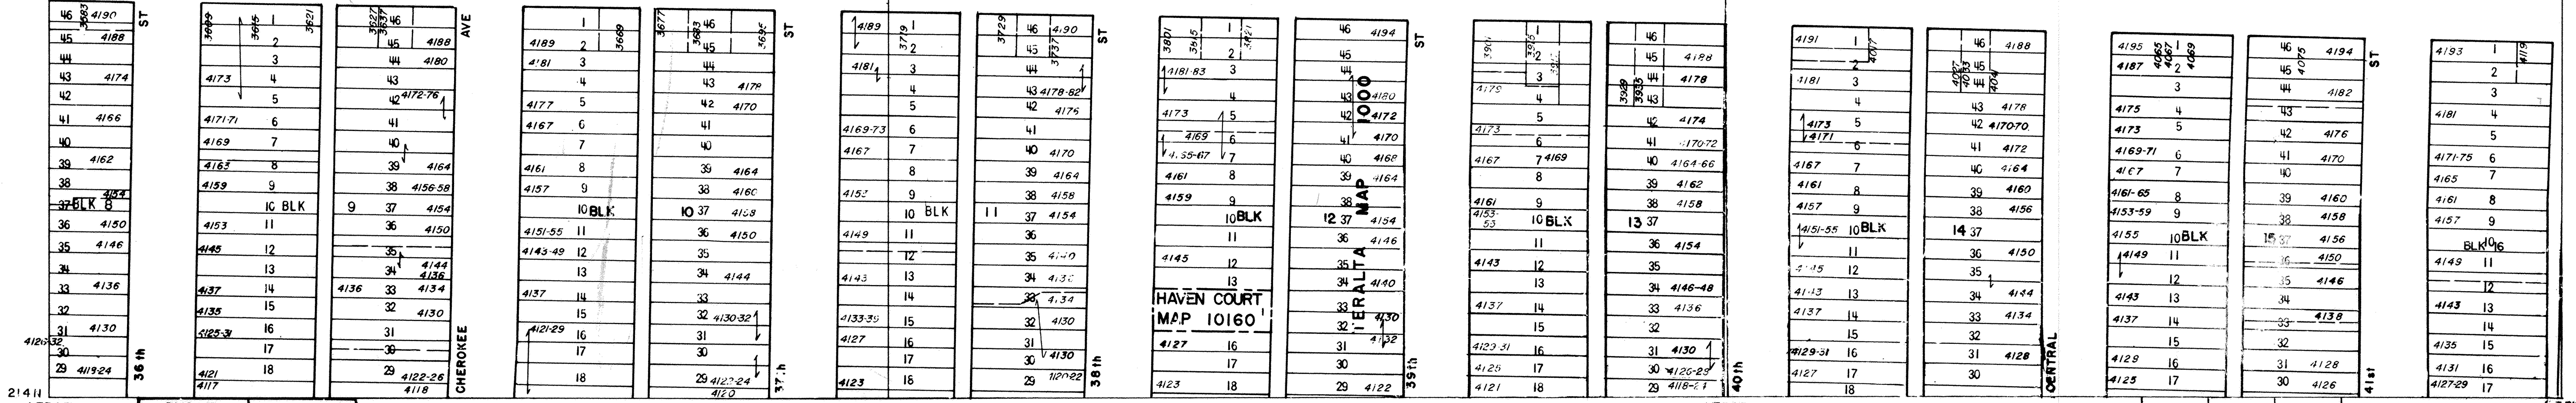 46 3683 4190
45 4188
44
43 4174
42
41 4166
40
39 4162
38 4154
37 BLK 8
36 4150
35 4146
34
33 4136
32
31 4130
30
29 4119-24
21411
ST
36th
3609 3615 1 3621
2
3
4173 4
5
4171-71 6
4169 7
4163 8
4159 9
10 BLK 9
4153 11
4145 12
13
4137 14
4135 15
4125-31 16
17
4121 18
4117
3627 3637 46
45 4188
44 4180
43
42 4172-76
41
40
39 4164
38 4156-58
37 4154
36 4150
35
34 4144
4136
4136 33 4134
32 4130
31
30
29 4122-26
4118
AVE
CHEROKEE
1 3669
4189 2
4181 3
4
4177 5
4167 6
7
4161 8
4157 9
10 BLK 10
4151-55 11
4143-49 12
13
4137 14
15
4121-29 16
17
18
3677 3683 46 3695
45
44
43 4178
42 4170
41
40
39 4164
38 4160
37 4158
36 4150
35
34 4144
33
32 4130-32
31
30
29 4122-24
4120
ST
37th
4189 3719 1
2
4181 3
4
5
4169-73 6
4167 7
8
4153 9
10 BLK 11
4149 11
12
4143 13
14
4133-39 15
4127 16
17
4123 18
3729 46 4190
45 3737
44
43 4178-82
42 4176
41
40 4170
39 4164
38 4158
37 4154
36
35 4140
34
33 4134
32 4130
31
30 4130
29 4120-22
ST
38th
3801 3815 1 3821
2
4181-83 3
4
4173 5
4169 6
7
4161 8
4159 9
10 BLK 12
11
4145 12
13
HAVEN COURT
MAP 10160
4127 16
17
4123 18
46 4194
45
44
43 4180
42 4172
41 4170
40 4168
39 4164
38
37 4154
36 4146
35
34 4140
33
32 4130
31 4132
30
29 4122
TERALTA MAP 1000
ST
39th
3901 3915 1
2
3
4179 4
5
4173 6
4167 7 4169
8
4161 9
4153-55 10 BLK 13
11
4143 12
13
4137 14
15
4129-31 16
4125 17
4121 18
46
45 4188
44 4178
3929 3935 43
42 4174
41 4170-72
40 4164-66
39 4162
38 4158
37
36 4154
35
34 4146-48
33 4136
32
31 4130
30 4126-28
29
40th
4191 1 4017
2
4181 3
4
4173 5
4171 6
4167 7
4161 8
4157 9
4151-55 10 BLK 14
11
12
4143 13
4137 14
15
4129-31 16
4127 17
18
46 4188
4027 4033 45
44
43 4178
42 4170-70
41 4172
40 4164
39 4160
38 4156
37
36 4150
35
34 4144
33 4134
32
31 4128
30
CENTRAL
4195 4065 4067 4069 1
4187 2
3
4175 4
4173 5
4169-71 6
4167 7
4161-65 8
4153-59 9
4155 10 BLK 15
4149 11
12
4143 13
4137 14
15
4129 16
4125 17
46 4075 4194
45
44 4182
43
42 4176
41 4170
40
39 4160
38 4158
37 4156
36 4150
35 4146
34
33 4138
32
31 4128
30 4126
ST
41st
4193 1 4119
2
3
4181 4
5
4171-75 6
4165 7
4161 8
4157 9
BLK 10 16
4149 11
12
4143 13
14
4135 15
4131 16
4127-29 17